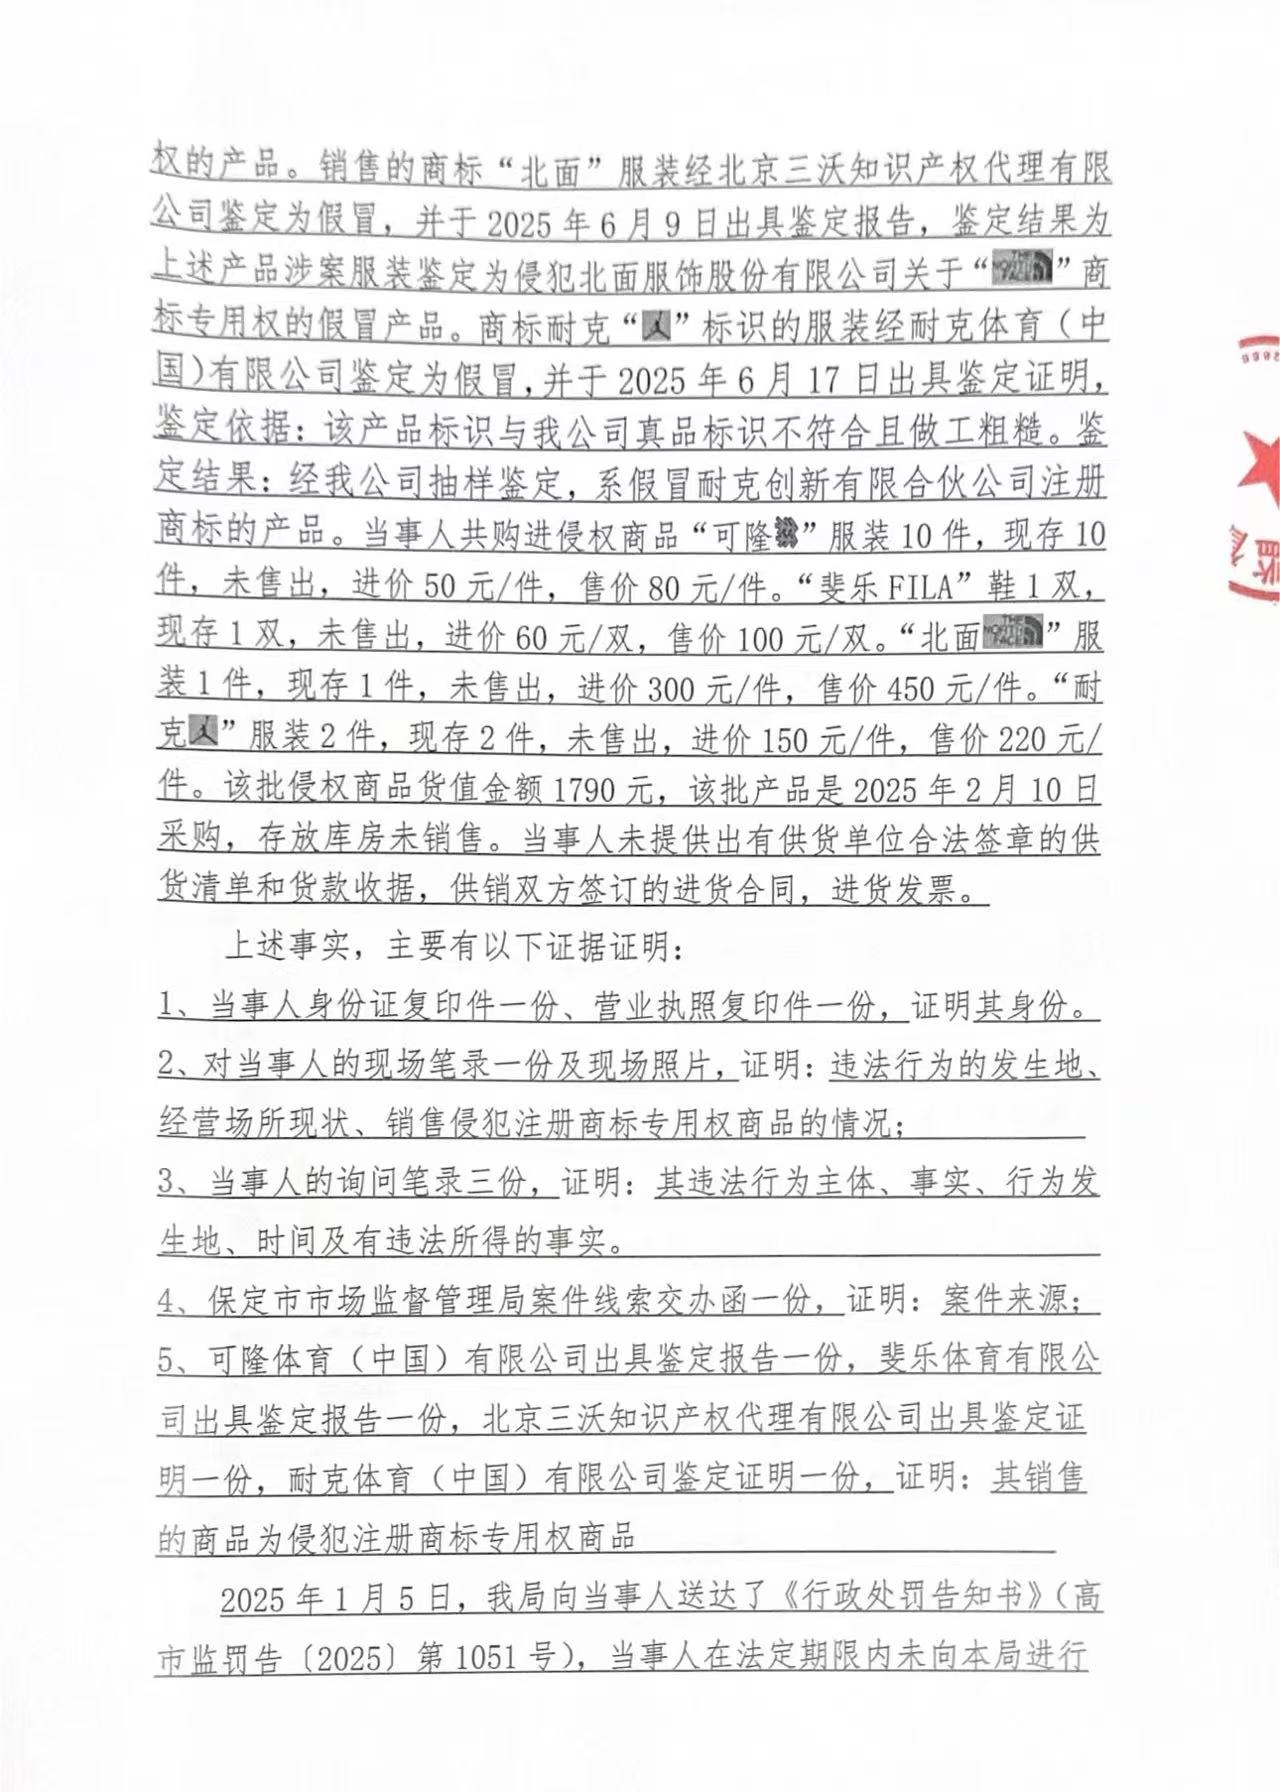 权的产品。销售的商标“北面”服装经北京三沃知识产权代理有限
公司鉴定为假冒，并于 2025 年 6 月 9 日出具鉴定报告，鉴定结果为
上述产品涉案服装鉴定为侵犯北面服饰股份有限公司关于“THE NORTH FACE”商
标专用权的假冒产品。商标耐克“”标识的服装经耐克体育（中
国)有限公司鉴定为假冒，并于 2025 年 6 月 17 日出具鉴定证明，
鉴定依据：该产品标识与我公司真品标识不符合且做工粗糙。鉴
定结果：经我公司抽样鉴定，系假冒耐克创新有限合伙公司注册
商标的产品。当事人共购进侵权商品“可隆”服装 10 件，现存 10
件，未售出，进价 50 元/件，售价 80 元/件。“斐乐 FILA”鞋 1 双，
现存 1 双，未售出，进价 60 元/双，售价 100 元/双。“北面THE NORTH FACE”服
装 1 件，现存 1 件，未售出，进价 300 元/件，售价 450 元/件。“耐
克”服装 2 件，现存 2 件，未售出，进价 150 元/件，售价 220 元/
件。该批侵权商品货值金额 1790 元，该批产品是 2025 年 2 月 10 日
采购，存放库房未销售。当事人未提供出有供货单位合法签章的供
货清单和货款收据，供销双方签订的进货合同，进货发票。
上述事实，主要有以下证据证明：
1、当事人身份证复印件一份、营业执照复印件一份，证明其身份。
2、对当事人的现场笔录一份及现场照片，证明：违法行为的发生地、
经营场所现状、销售侵犯注册商标专用权商品的情况；
3、当事人的询问笔录三份，证明：其违法行为主体、事实、行为发
生地、时间及有违法所得的事实。
4、保定市市场监督管理局案件线索交办函一份，证明：案件来源；
5、可隆体育（中国）有限公司出具鉴定报告一份，斐乐体育有限公
司出具鉴定报告一份，北京三沃知识产权代理有限公司出具鉴定证
明一份，耐克体育（中国）有限公司鉴定证明一份，证明：其销售
的商品为侵犯注册商标专用权商品
2025 年 1 月 5 日，我局向当事人送达了《行政处罚告知书》（高
市监罚告〔2025〕第 1051 号），当事人在法定期限内未向本局进行